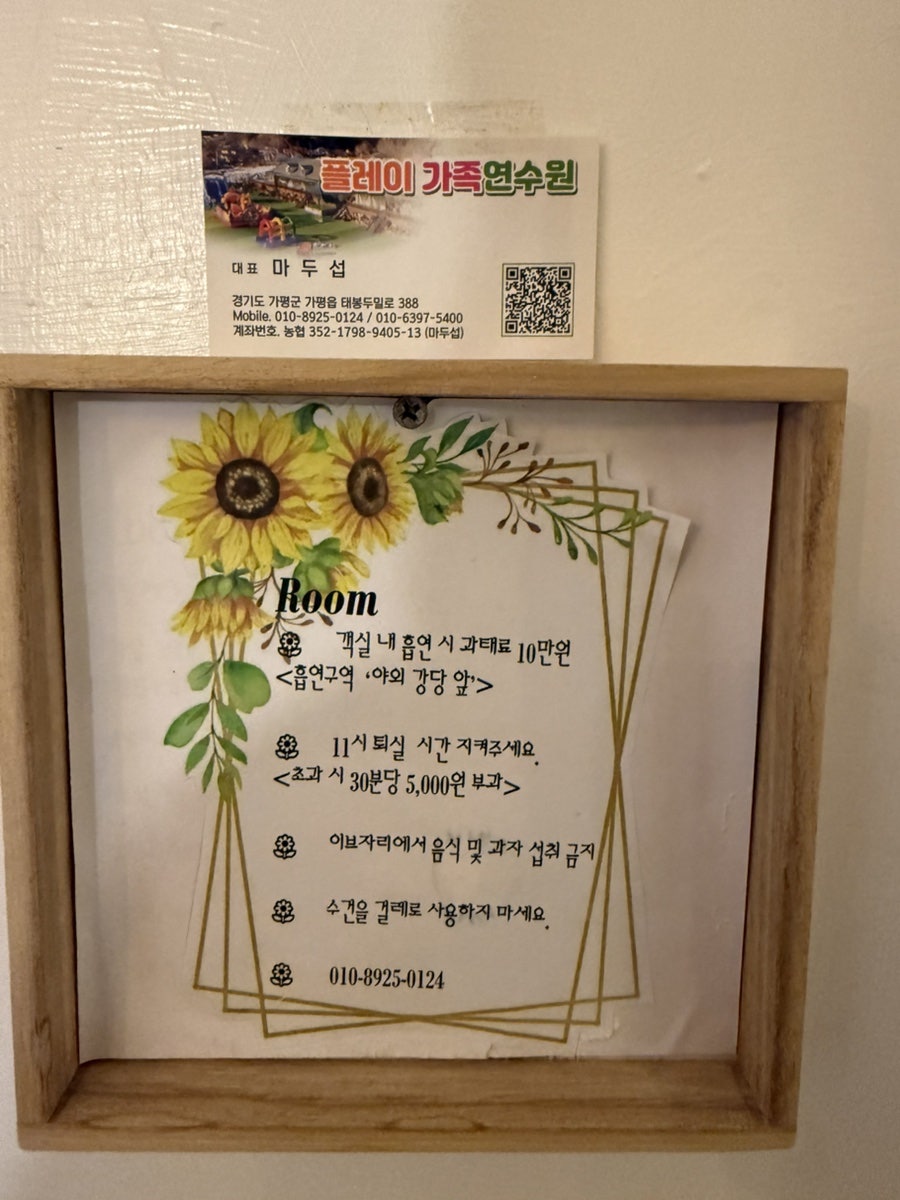 플레이 가족연수원
대표 마두섭
경기도 가평군 가평읍 태봉두밀로 388
Mobile. 010-8925-0124 / 010-6397-5400
계좌번호. 농협 352-1798-9405-13 (마두섭)
Room
객실 내 흡연 시 과태료 10만원
<흡연구역 '야외 강당 앞'>
11시 퇴실 시간 지켜주세요.
<초과 시 30분당 5,000원 부과>
이브자리에서 음식 및 과자 섭취 금지
수건을 걸레로 사용하지 마세요.
010-8925-0124